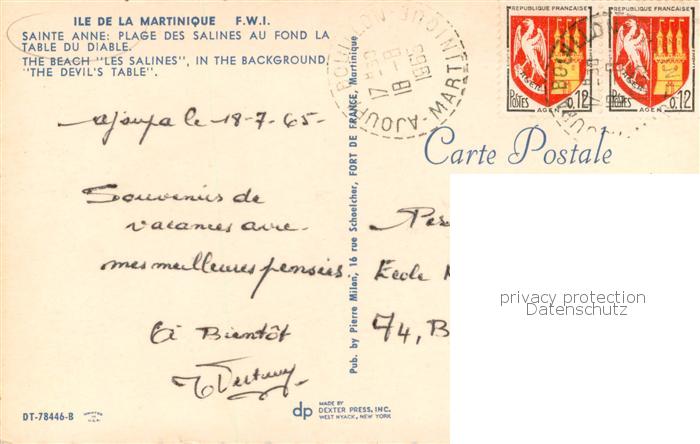 ILE DE LA MARTINIQUE F.W.I.
SAINTE ANNE: PLAGE DES SALINES AU FOND LA
TABLE DU DIABLE.
THE BEACH "LES SALINES", IN THE BACKGROUND,
"THE DEVIL'S TABLE".
Ajoupa le 18-7-65-
Souvenirs de
vacances avec
mes meilleures pensées.
à Bientôt
DT-78446-B
Pub. by Pierre Milon, 16 rue Schoelcher, FORT DE FRANCE, Martinique
dp MADE BY
DEXTER PRESS, INC.
WEST NYACK, NEW YORK
AJOUPA-BOUILLON MARTINIQUE
18-8
1965
REPUBLIQUE FRANCAISE
POSTES
AGEN
0,12
REPUBLIQUE FRANCAISE
POSTES
AGEN
0,12
Carte Postale
Ecole
74, B
privacy protection
Datenschutz